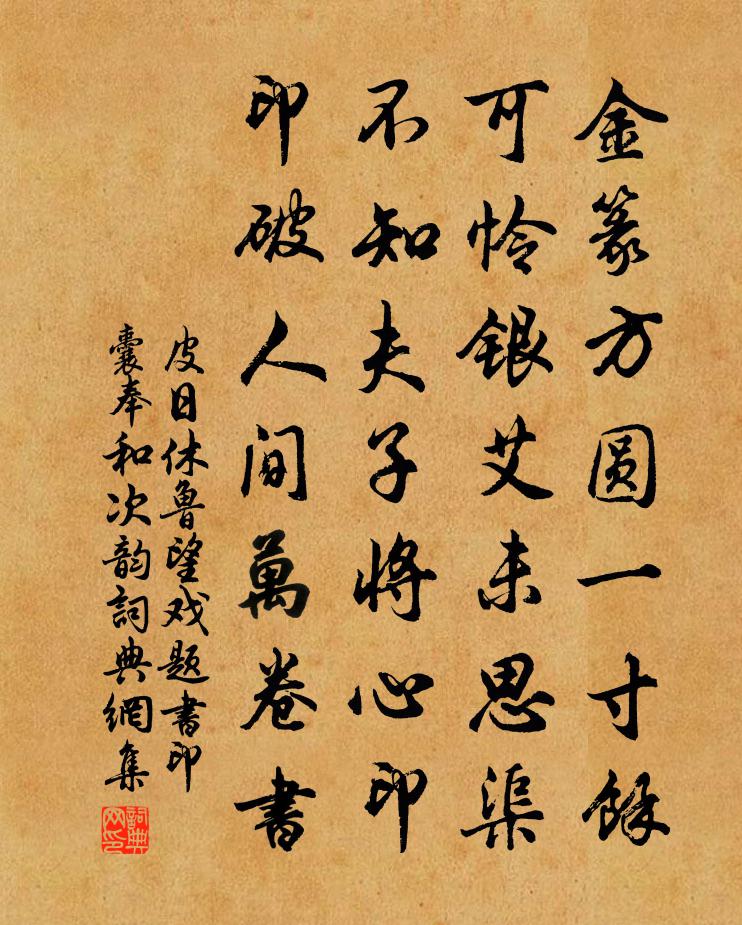 金篆方圆一寸餘
可怜銀艾未思渠
不知夫子将心印
印破人间萬卷書
皮日休魯望戏题書印
囊奉和次韵詞典網集
詞典网印